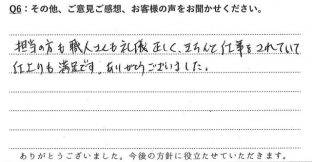 Q6：その他、ご意見ご感想、お客様の声をお聞かせください。
担当の方も職人さんも礼儀正しく、きちんと仕事をされていて
仕上りも満足です。ありがとうございました。
ありがとうございました。今後の方針に役立たせていただきます。